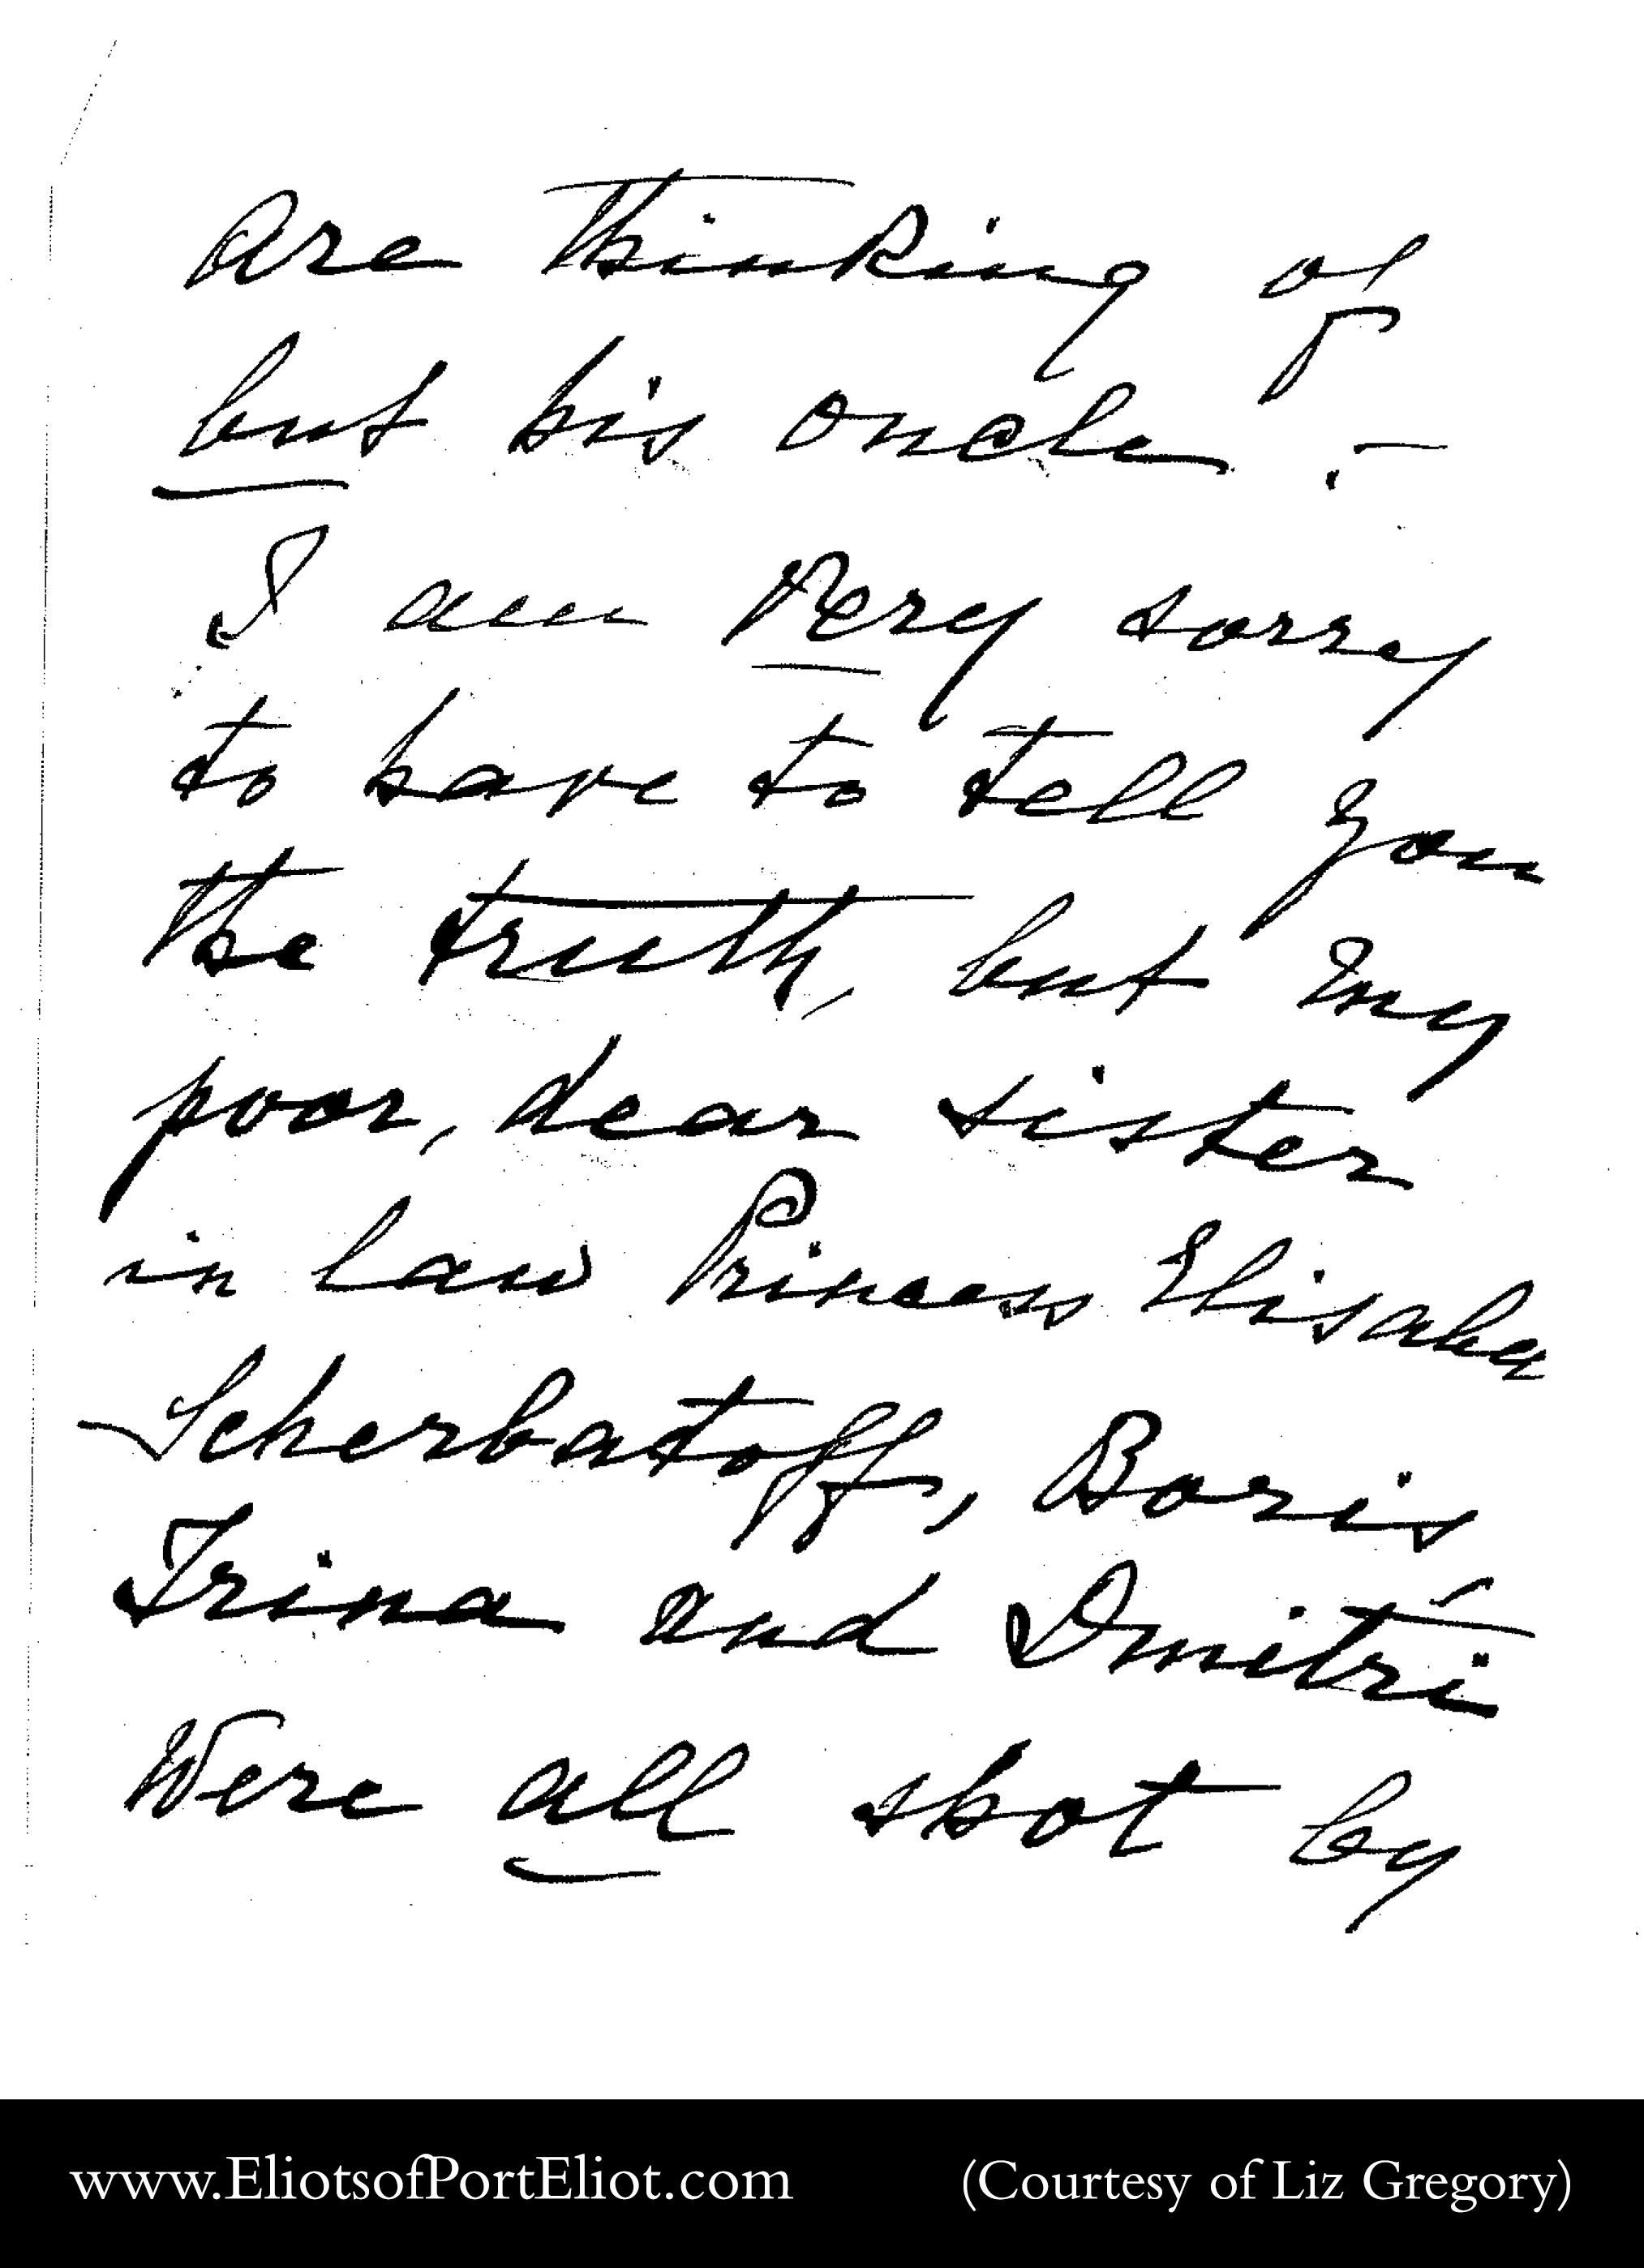 are thinking of
but his oncle. –
I am very sorry
to have to tell you
the truth, but my
poor, dear sister
in law Princess Elisabeth
Scherbatoff, Boris,
Irina and Dmitri
were all shot by
www.EliotsofPortEliot.com (Courtesy of Liz Gregory)